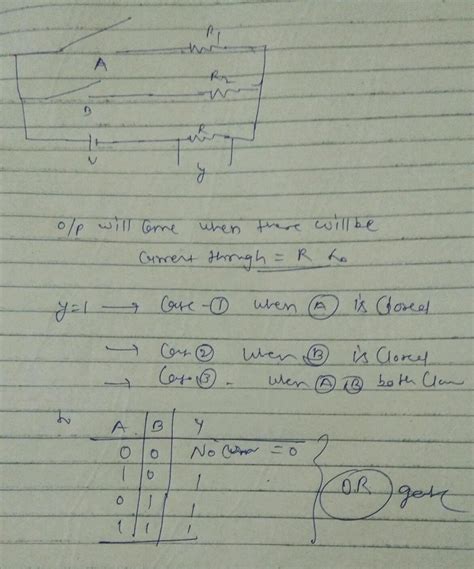 R1
A
R2
B
R
V
y
o/p will come when there will be
current through = R
y=1 → Case-① when Ⓐ is closed
→ Case ② when Ⓑ is closed
→ Case ③ - when Ⓐ Ⓑ both
A B Y
0 0 No = 0
1 0 1
0 1 1
1 1 1
OR gate